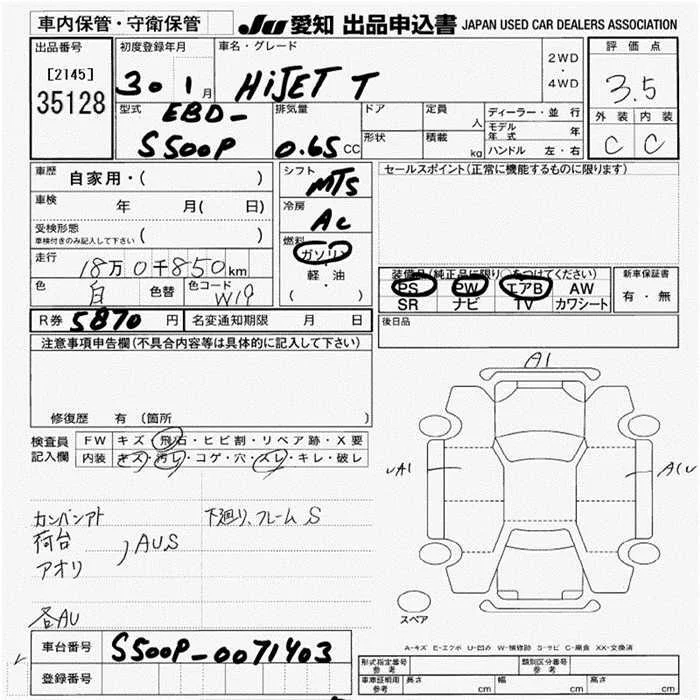 車内保管・守衛保管
JU 愛知 出品申込書 JAPAN USED CAR DEALERS ASSOCIATION
出品番号
[2145]
35128
初度登録年月
30 1 月
車名・グレード
HiJET T
2WD
・
4WD
評価点
3.5
外装 内装
C C
型式
EBD-
S500P
排気量
0.65 CC
ドア
形状
定員
人
積載
kg
ディーラー・並行
モデル年式 年
ハンドル 左・右
車歴 自家用・( )
車検 年 月( 日)
受検形態
車検付きのみ記入して下さい ( )
走行 18万0千850km
色 白 色替 色コード W19
シフト
MT5
冷房
AC
燃料
ガソリン
・
軽油
( )
セールスポイント(正常に機能するものに限ります)
装備品(純正品に限り○をつけてください)
PS PW エアB AW
SR ナビ TV カワシート
新車保証書
有・無
R券 5870 円 名変通知期限 月 日
後日品
注意事項申告欄(不具合内容等は具体的に記入して下さい)
修復歴 有(箇所 )
検査員記入欄
FW キズ・飛石・ヒビ割・リペア跡・X要
内装 キズ・汚レ・コゲ・穴・スレ・キレ・破レ
A1
A1
カンバンアト
荷台
アオリ
AUS
下廻り、フレーム S
各AU
スペア
A-キズ E-エクボ U-凹み W-補修跡 S-サビ C-腐食 XX-交換済
車台番号 S500P-0071403
登録番号
形式指定番号 参考
類別区分番号 参考
車庫証明用 参考 長さ cm 幅 cm 高さ cm